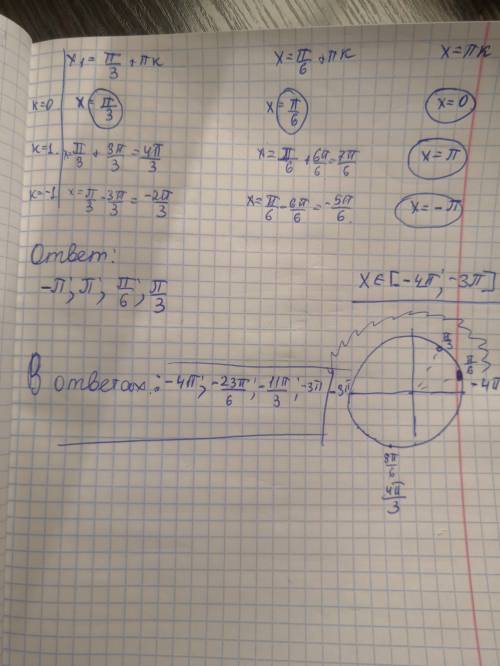 x₁ = π/3 + πk   x = π/6 + πk   x = πk
k=0   x = π/3   x = π/6   x = 0
k=1.   x = π/3 + 3π/3 = 4π/3   x = π/6 + 6π/6 = 7π/6   x = π
k=-1   x = π/3 - 3π/3 = -2π/3   x = π/6 - 6π/6 = -5π/6.   x = -π
Ответ:
-π; π; π/6; π/3
x ∈ [-4π; -3π]
В ответах: -4π; -23π/6; -11π/3; -3π
π/3
π/6
-3π
-4π
4π/3